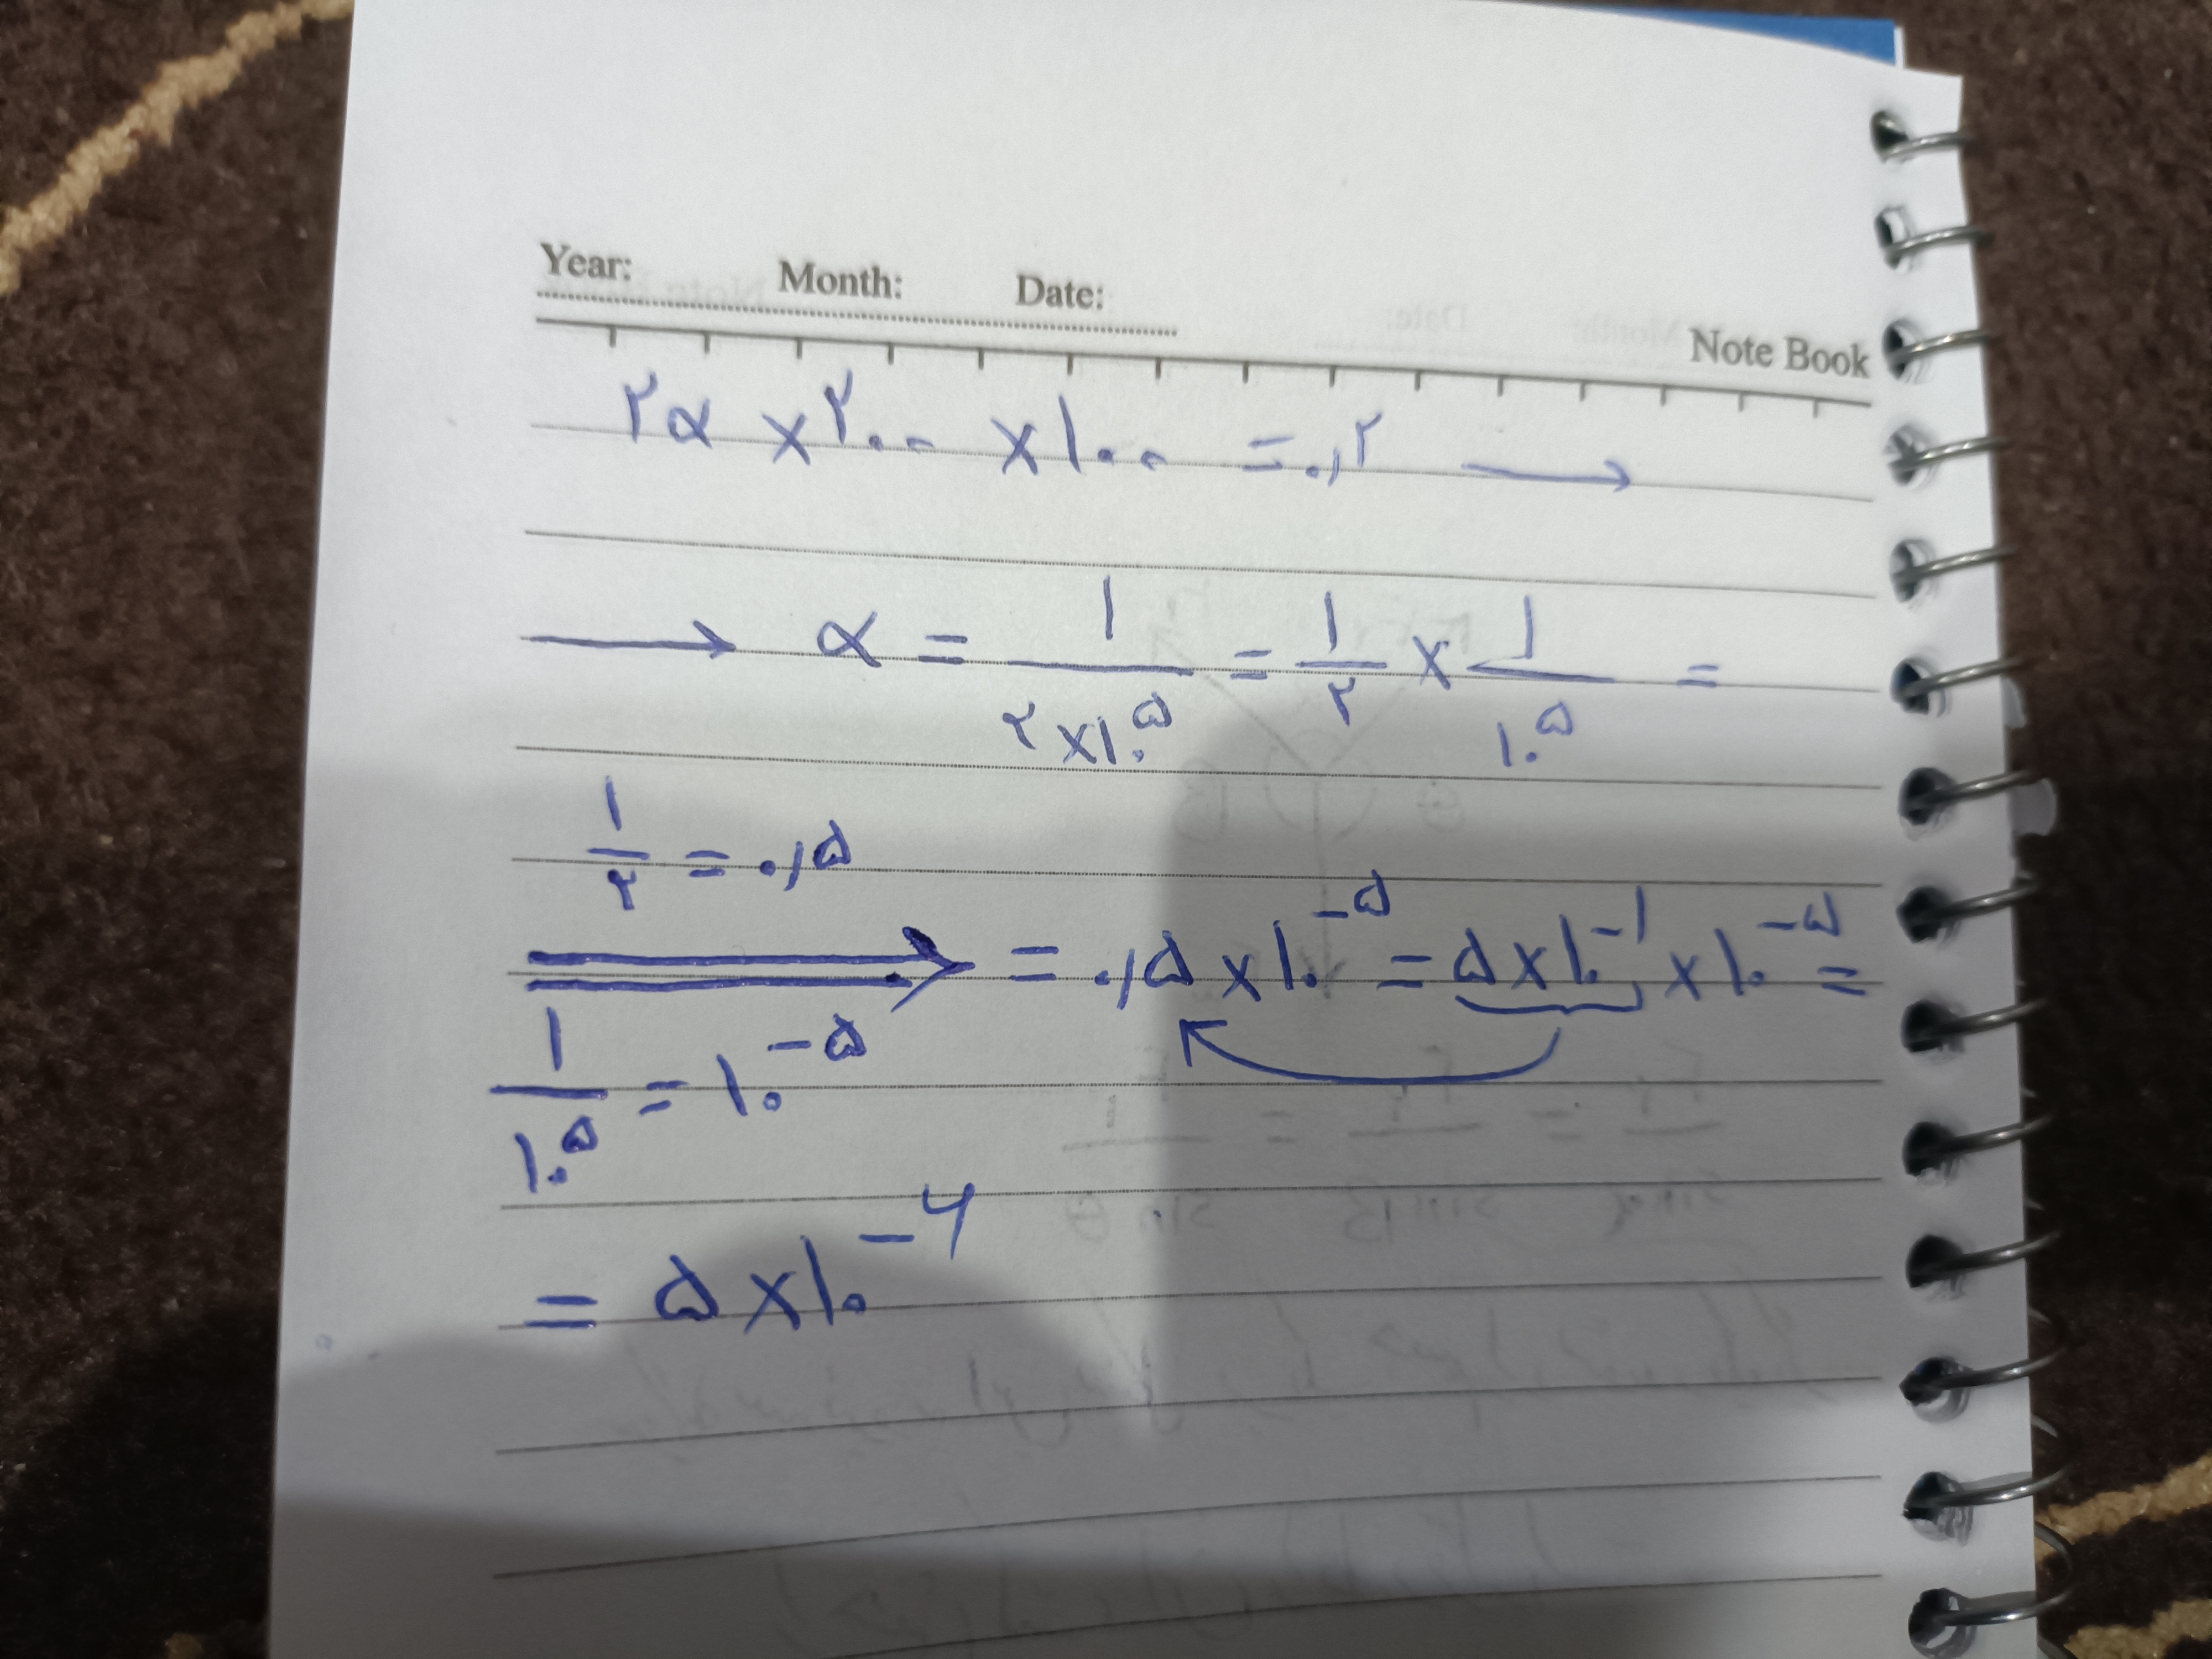 Year: Month: Date:
Note Book
۲α × ۲۰۰ × ۱۰۰ = ۰٫۲ →
→ α = ۱/(۲×۱۰^۵) = ۱/۲ × ۱/۱۰^۵ =
۱/۲ = ۰٫۵
⇒ = ۰٫۵ × ۱۰^-۵ = ۵ × ۱۰^-۱ × ۱۰^-۵ =
۱/۱۰^۵ = ۱۰^-۵
= ۵ × ۱۰^-۶